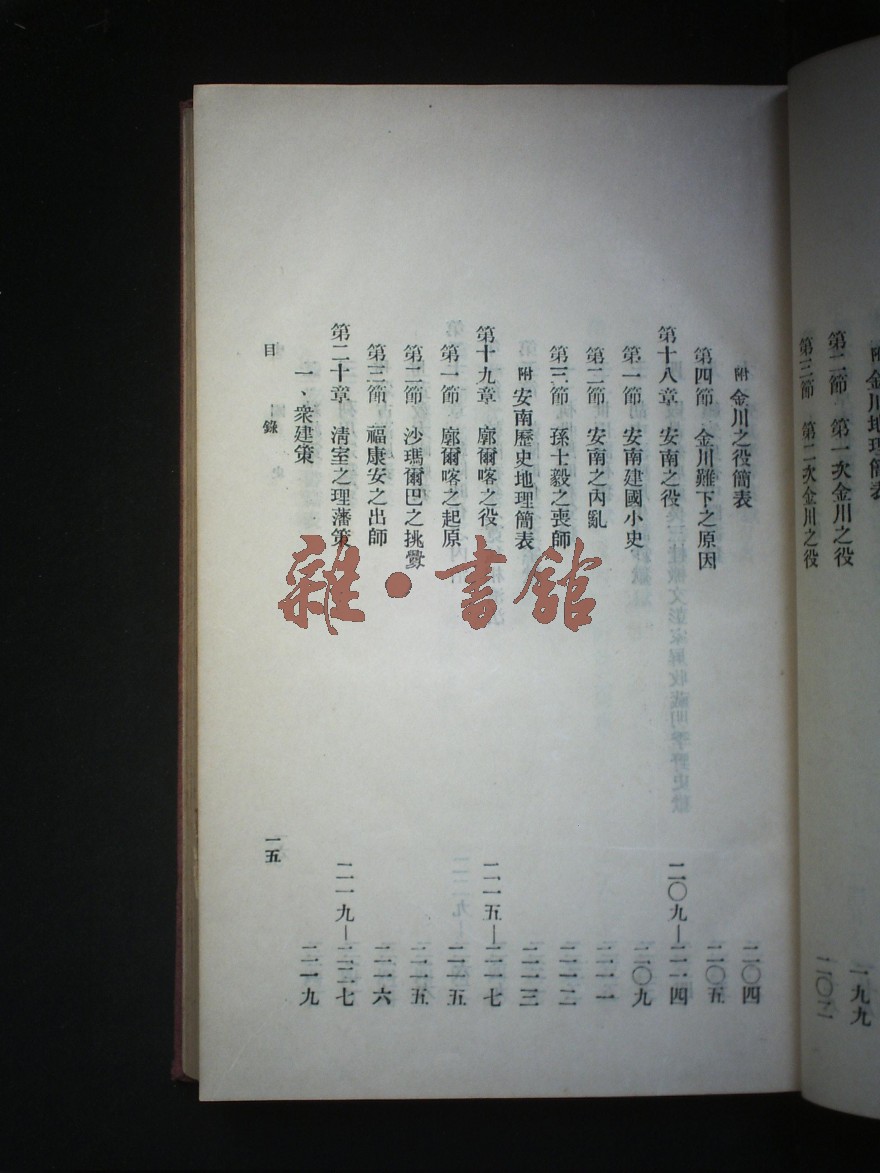 附 金川地理簡表
第二節 第一次金川之役 一九九
第三節 第二次金川之役 二〇二
附 金川之役簡表 二〇四
第四節 金川難下之原因 二〇五
第十八章 安南之役 二〇九—二一四
第一節 安南建國小史 二〇九
第二節 安南之內亂 二一一
第三節 孫士毅之喪師 二一二
附 安南歷史地理簡表 二一三
第十九章 廓爾喀之役 二一五—二一七
第一節 廓爾喀之起原 二一五
第二節 沙瑪爾巴之挑釁 二一五
第三節 福康安之出師 二一六
第二十章 清室之理藩策 二一九—二二七
一、衆建策 二一九
目錄 一五
雜·書館